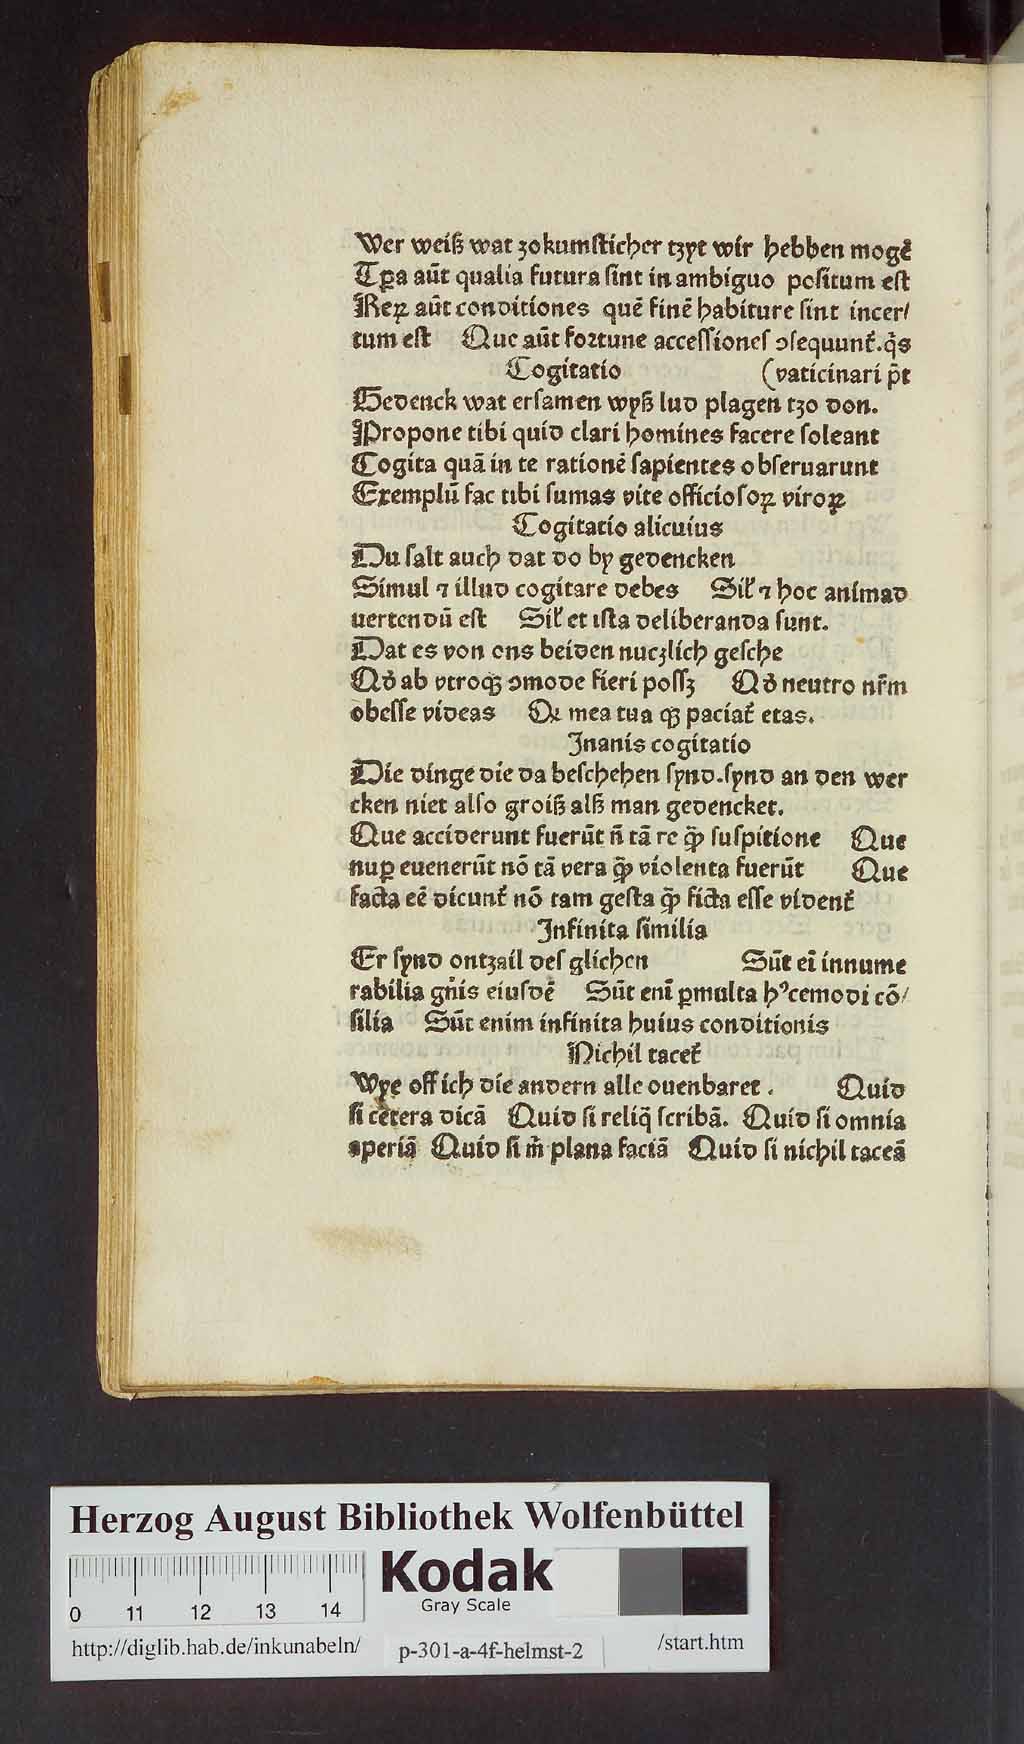 Wer weiß wat zokumſticher tzyt wir hebben mogē
Tꝑa aūt qualia futura ſint in ambiguo poſitum eſt
Reꝝ aūt conditiones quē finē habiture ſint incer/
tum eſt Que aūt foꝛtune acceſſioneſ ↄſequunt̄. q̄s
Cogitatio (vaticinari p̄t
Gedenck wat erſamen wyß lud plagen tzo don.
Propone tibi quid clari homines facere ſoleant
Cogita quā in te rationē ſapientes obſeruarunt
Exemplū fac tibi ſumas vite officioſoꝝ viroꝝ
Cogitatio alicuius
Du ſalt auch dat do by gedencken
Simul ⁊ illud cogitare debes Sil̛ ⁊ hoc animad
uertendū eſt Sil̛ et iſta deliberanda ſunt.
Dat es von ons beiden nuczlich geſche
Qď ab vtroqꝫ ↄmode fieri poſſꝫ Qď neutro nr̄m
obeſſe videas Qꝛ mea tua qꝫ paciat̄ etas.
Inanis cogitatio
Die dinge die da beſchehen ſynd. ſynd an den wer
cken niet alſo groiß alß man gedencket.
Que acciderunt fuerūt n̄ tā re q̄ꝫ ſuſpitione Que
nuꝑ euenerūt nō tā vera q̄ꝫ violenta fuerūt Que
facta eē dicunt̄ nō tam geſta q̄ꝫ ficta eſſe vident̄
Infinita ſimilia
Er ſynd ontzail deſ glichen Sūt eī innume
rabilia gn̄is eiuſdē Sūt enī ꝑmulta hꝰcemodi cō/
ſilia Sūt enim infinita huius conditionis
Nichil tacet̄
Wye off ich die andern alle ouenbaret. Quid
ſi cetera dicā Quid ſi reliq̄ ſcribā. Quid ſi omnia
aperiā Quid ſi m̄ plana faciā Quid ſi nichil taceā
Herzog August Bibliothek Wolfenbüttel
Kodak
Gray Scale
0 11 12 13 14
http://diglib.hab.de/inkunabeln/ p-301-a-4f-helmst-2 /start.htm